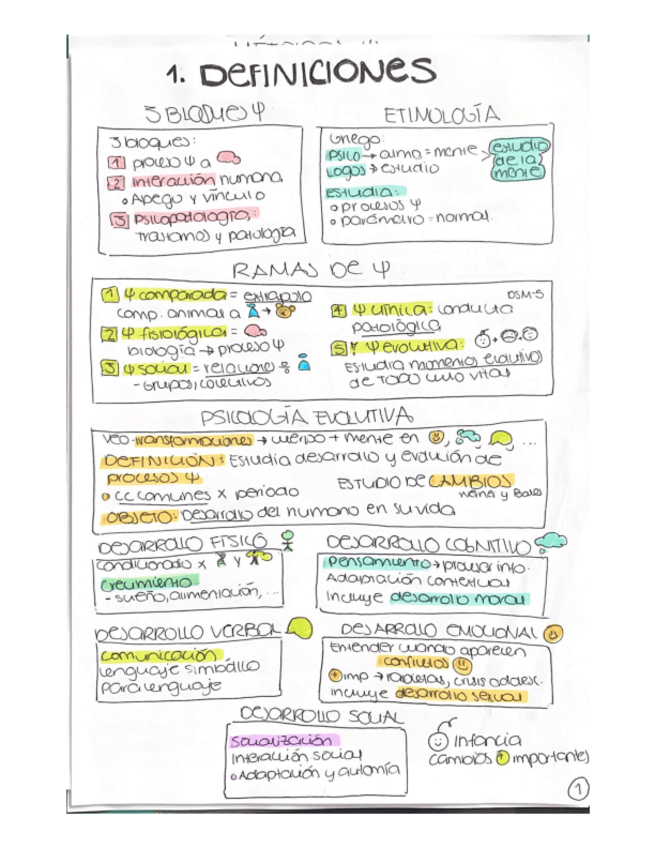 1. DEFINICIONES
3 BLOQUES Ψ
3 bloques:
1 proceso Ψ a
2 interacción humana
• Apego y vínculo
3 Psicopatología:
Trastornos y patología
ETIMOLOGÍA
Griego:
PSICO → alma = mente
LOGOS → estudio
estudio de la mente
Estudia:
• procesos Ψ
• parámetro = normal.
RAMAS DE Ψ
1 Ψ comparada = extrapola
comp. animal a →
2 Ψ fisiológica =
biología → proceso Ψ
3 Ψ social = relaciones
- Grupos/colectivos
DSM-5
4 Ψ clínica: conducta
patológica
5 Ψ evolutiva:
Estudia momentos evolutivos
de TODO ciclo vital
PSICOLOGÍA EVOLUTIVA
Veo transformaciones → cuerpo + mente en , , , ...
DEFINICIÓN: Estudia desarrollo y evolución de
procesos Ψ
• cc comunes x periodo
ESTUDIO DE CAMBIOS
Werner y Bales
OBJETO: Desarrollo del humano en su vida
DESARROLLO FÍSICO
Condicionado x Y
Crecimiento
- sueño, alimentación, ...
DESARROLLO COGNITIVO
Pensamiento → procesar info.
Adaptación contextual
Incluye desarrollo moral
DESARROLLO VERBAL
Comunicación
Lenguaje simbólico
Para lenguaje
DESARROLLO EMOCIONAL
Entender cuando aparecen
conflictos
+ imp → rabietas, crisis adolesc.
Incluye desarrollo sexual
DESARROLLO SOCIAL
Socialización
Interacción social
• Adaptación y autonomía
Infancia
cambios + importantes
1